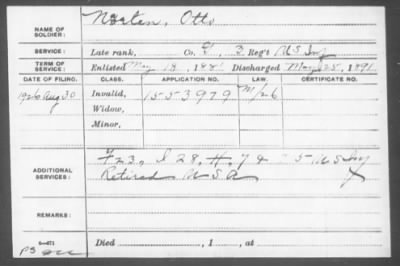 NAME OF SOLDIER: Norten, Otto
SERVICE: Late rank, Co. G, 3 Reg't U S Inf
TERM OF SERVICE: Enlisted May 18, 1881 Discharged May 25, 1891
DATE OF FILING. CLASS. APPLICATION NO. LAW. CERTIFICATE NO.
1926 Aug 30 Invalid, 1553979
Widow,
Minor,
ADDITIONAL SERVICES: F 23, I 28, H, 7 & 5 U S Inf
Retired U S A
REMARKS:
Died , 1 , at